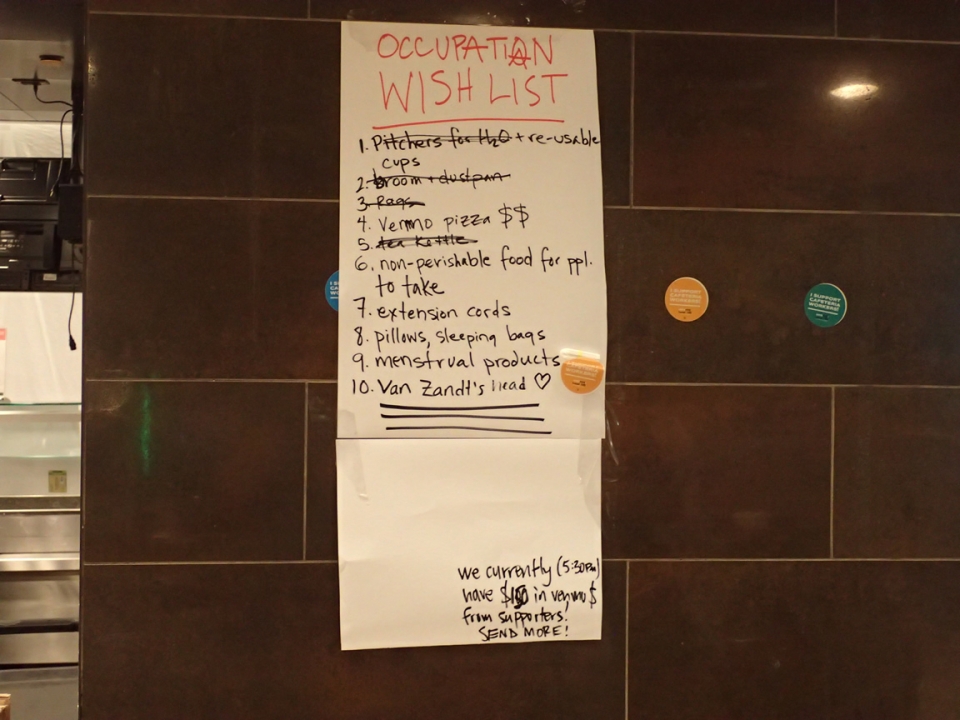 OCCUPATIAN
WISH LIST
1. Pitchers for H2O + re-usable
cups
2. broom + dustpan
3. Rags
4. Venmo pizza $$
5. tea kettle
6. non-perishable food for ppl.
to take
7. extension cords
8. pillows, sleeping bags
9. menstrual products
10. Van Zandt's head ♡
we currently (5:30PM)
have $150 in venmo $
from supporters.
SEND MORE!
I SUPPORT
CAFETERIA
WORKERS!
I SUPPORT
CAFETERIA
WORKERS!